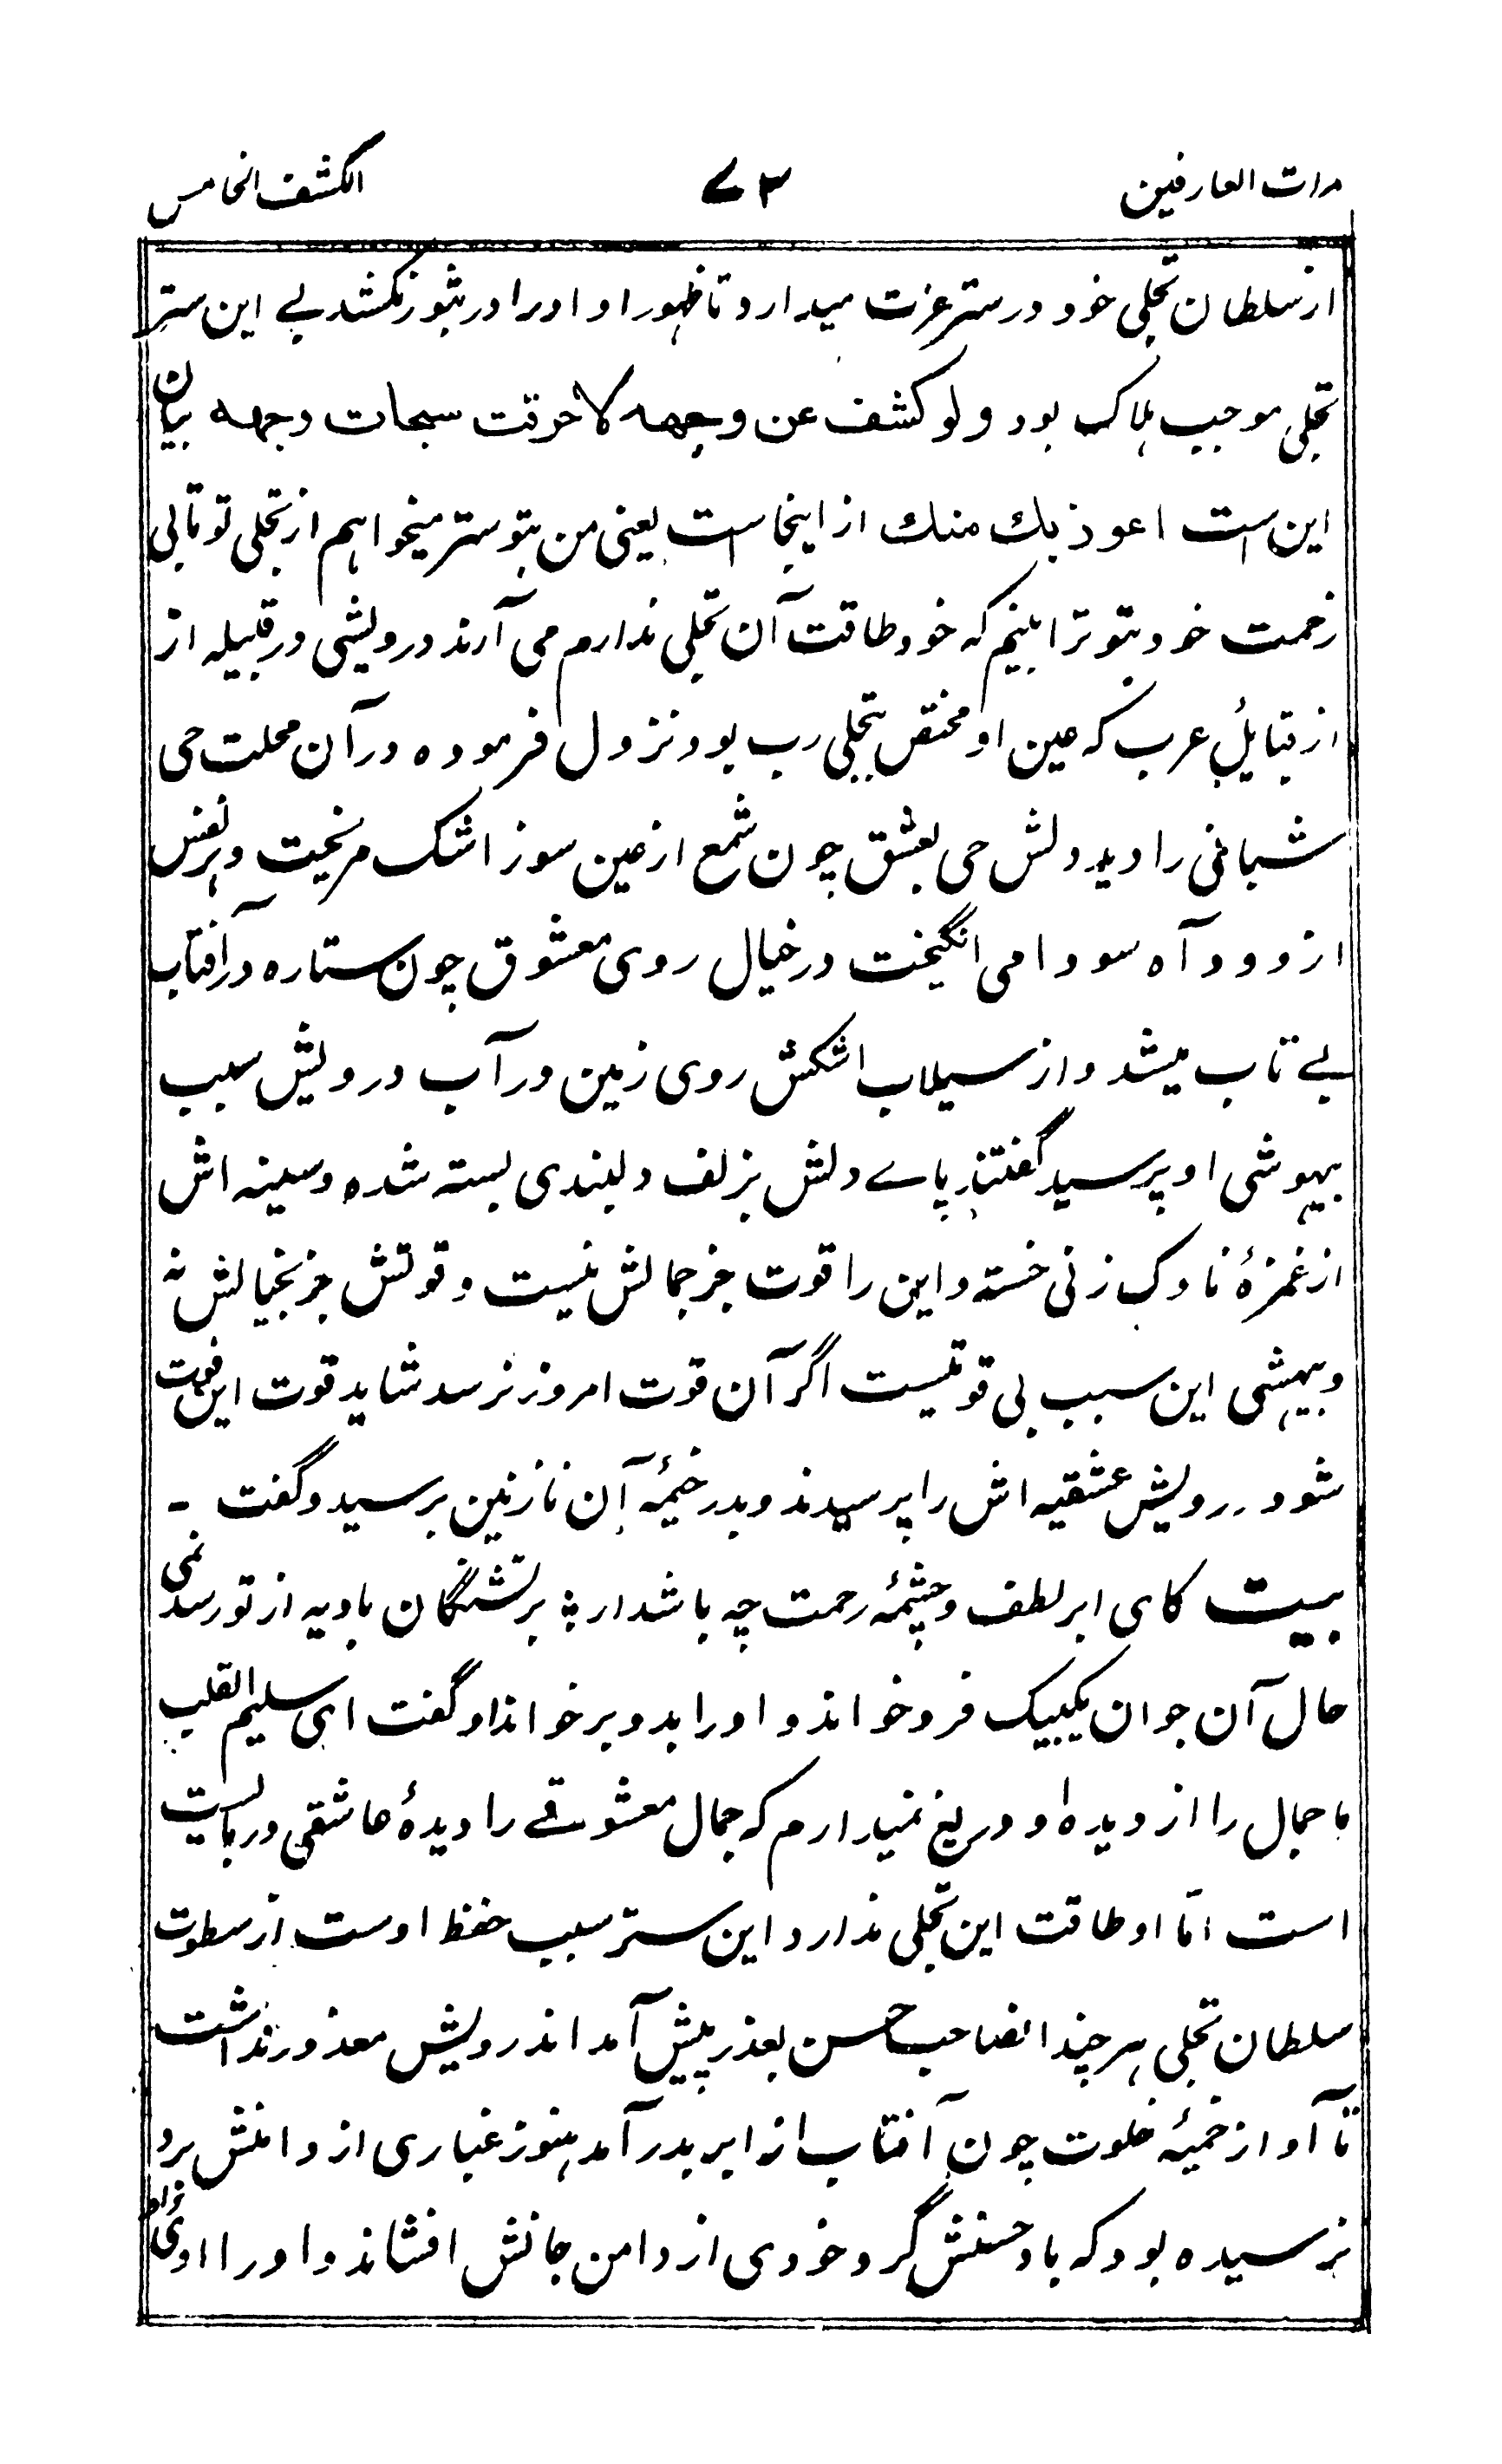 مرات العارفین ۷۲ الکشف الخامس
از سلطان تجلی خود در ستر عزت میدارد تا ظهور او او را در بثور نکشد بے این ستر
تجلی موجب هلاک بود و لو کشف عن وجهه لاحرقت سبحات وجهه بیان
این ست اعوذ بك منك از اینجاست یعنی من بتو ستر میخواهم از تجلی تو تا بی
زحمت خود بتو ترا بینم که خود طاقت آن تجلی ندارم می آرند درویشی در قبیله از
از قبایل عرب که عین او مختص بتجلی رب بود نزول فرموده در آن محلت حی
شبانی را دید دلش حی بعشق چون شمع از عین سوز اشک مریخت و بر نفس
از دود آه سودا می انگیخت در خیال روی معشوق چون ستاره در آفتاب
بے تاب میشد و از سیلاب اشکش روی زمین در آب درویش سبب
بیهوشی او پرسید گفتند پاے دلش بزلف دلبندی بسته شده و سینه اش
از غمزهٔ ناوک زنی خسته و این را قوت جز جمالش نیست و قوتش جز بخیالش نه
و بیهشی این سبب بی قوتیست اگر آن قوت امروز نرسد شاید قوت این فوت
شود درویش عشقیه اش را پرسیدند و بدر خیمهٔ آن نازنین برسید و گفت -
بیت کای ابر لطف و چشمهٔ رحمت چه باشد ار ؞ بر تشنگان بادیه از تو رسد نمی
حال آن جوان یکبیک فرو خواند و او را بدو بر خواند او گفت ای سلیم القلب
ما جمال را از دیده او دریغ نمیدارم که جمال معشوقے را دیدهٔ عاشقی در بایست
است امّا او طاقت این تجلی ندارد این ستر سبب حفظ اوست از سطوت
سلطان تجلی هر چند انصاحب حسن بعذر پیش آمد اندرویش معذور نداشت
تا او از خیمهٔ خلوت چون آفتاب از ابر بدر آمد هنوز غباری از دامنش برو
نرسیده بود که باد حسنش گرد خودی از دامن جانش افشاند و او را